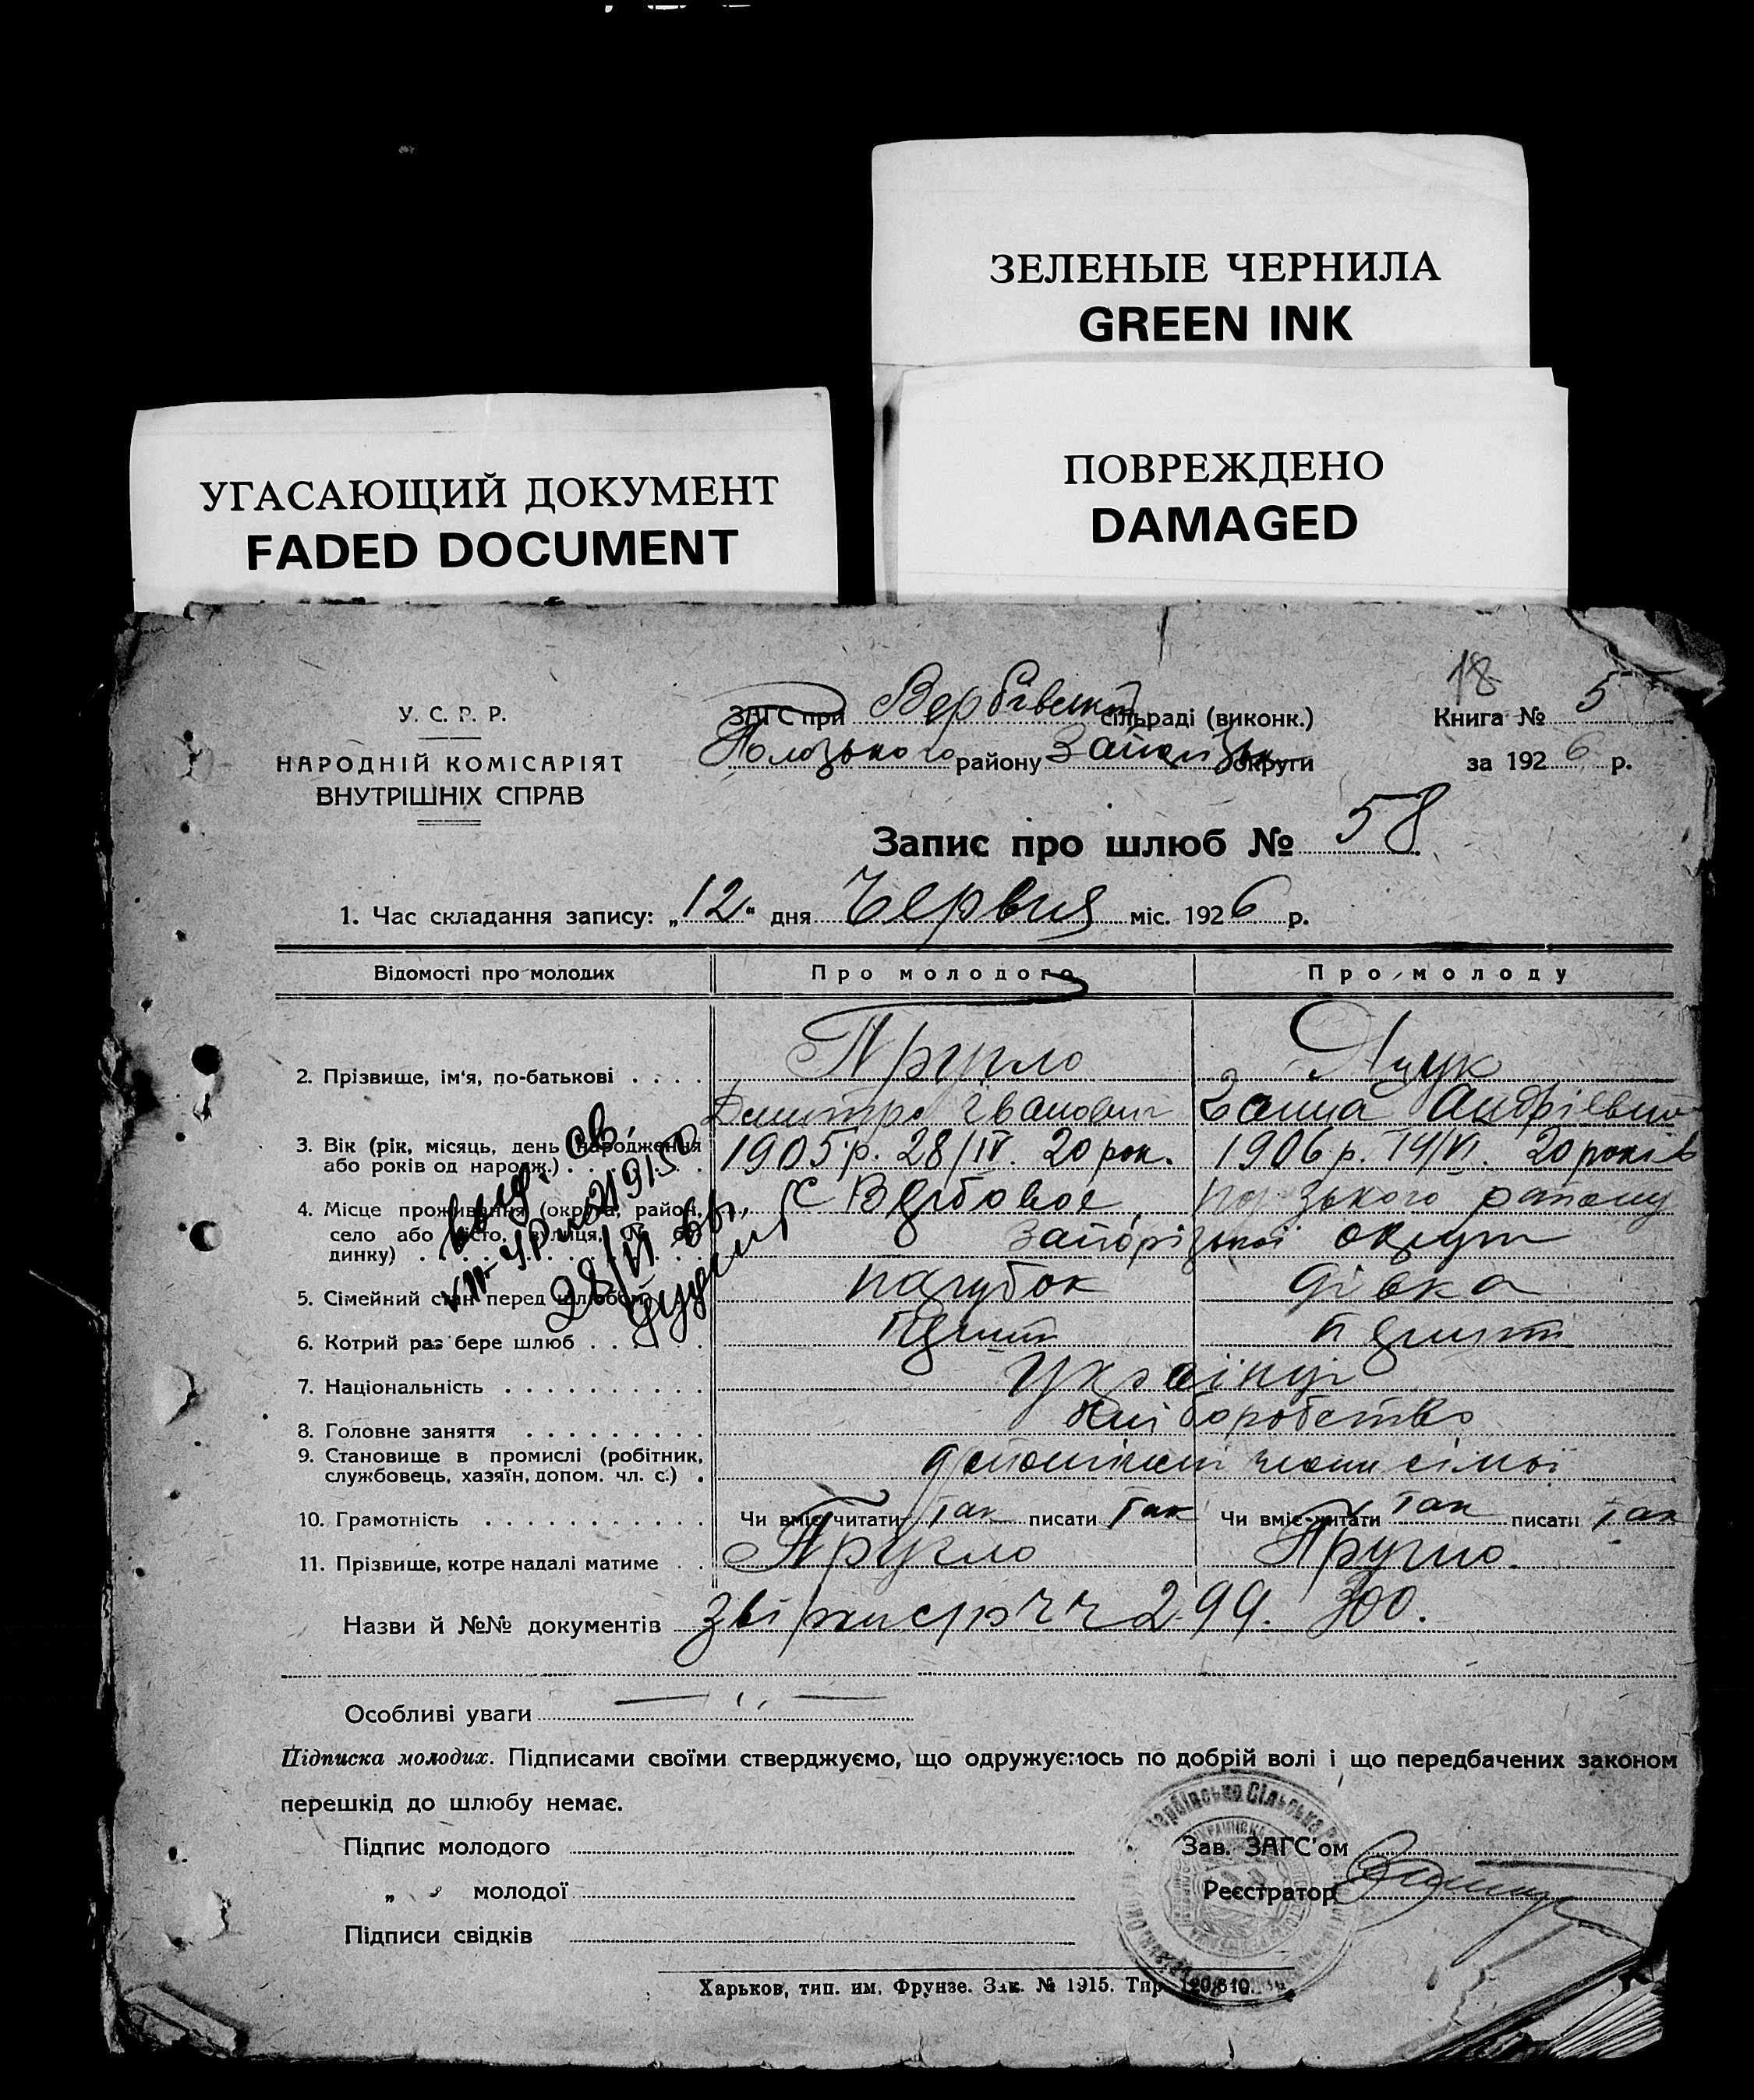 ЗЕЛЕНЫЕ ЧЕРНИЛА
GREEN INK
УГАСАЮЩИЙ ДОКУМЕНТ
FADED DOCUMENT
ПОВРЕЖДЕНО
DAMAGED
18
У. С. Р. Р.
НАРОДНІЙ КОМІСАРІЯТ
ВНУТРІШНІХ СПРАВ
ЗАГС при Вербівській сільраді (виконк.)
Пологського району Запоріжськ округи
Книга № 5
за 1926 р.
Запис про шлюб № 58
1. Час складання запису: „12" дня Червня міс. 1926 р.
Відомості про молодих Про молодого Про молоду
2. Прізвище, ім'я, по-батькові . . . . Пругло Яцук
Дмитро Іванович Ганна Андріевна
3. Вік (рік, місяць, день народження
або років од народж.) . . . . . 1905 р. 28/IV. 20 рок. 1906 р. 14/VI. 20 років
4. Місце проживання (округа, район,
село або місто, вулиця, № будинку) . . С Вербовое, району
Запорізької округи
5. Сімейний стан перед шлюбом парубок дівка
28/VI
6. Котрий раз бере шлюб . . . . . . перший перший
7. Національність . . . . . . . . . . Українці
8. Головне заняття . . . . . . . . . хліборобство
9. Становище в промислі (робітник,
службовець, хазяїн, допом. чл. с.) . допомішні члени сімьї
10. Грамотність . . . . . . . . . . . Чи вміє читати так писати так Чи вміє читати так писати так
11. Прізвище, котре надалі матиме . . Пругло Пругло.
Назви й №№ документів 299. 300.
Особливі уваги — " —
Підписка молодих. Підписами своїми стверджуємо, що одружуємось по добрій волі і що передбачених законом
перешкід до шлюбу немає.
Підпис молодого Зав. ЗАГС'ом
„ молодої Реєстратор
Підписи свідків
Харьков, тип. им. Фрунзе. Зак. № 1915. Тир. 120.610.